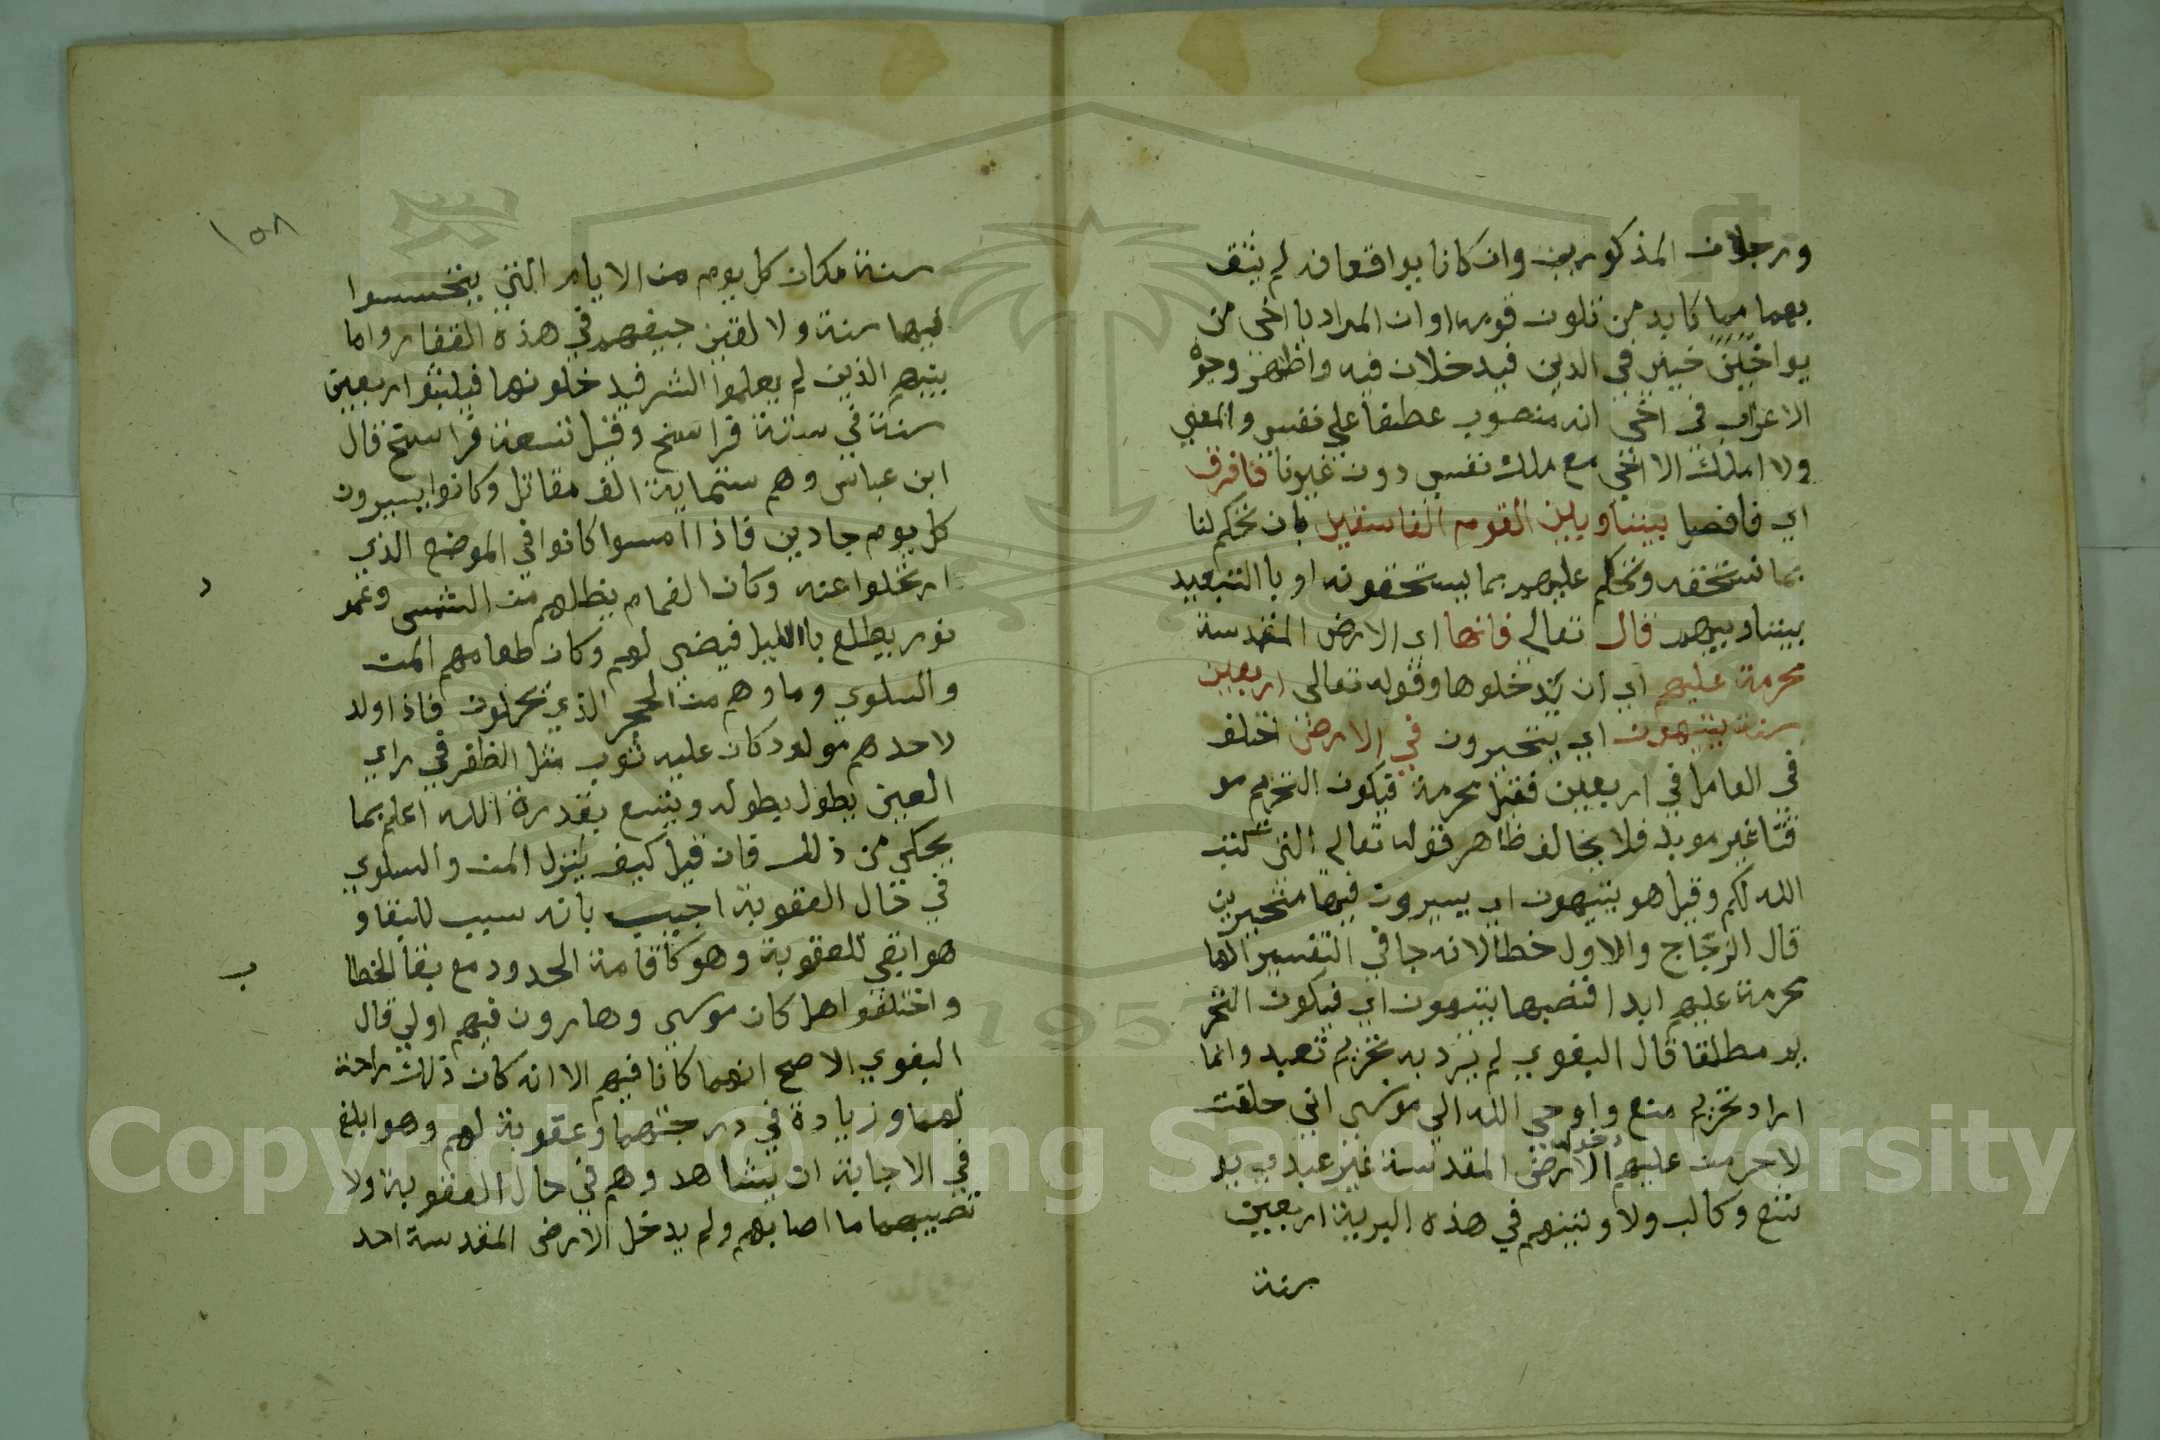 ورجلان المذكورين وان كانا يوافقانه لم يثق
بهما مما كابد من تلون قومه او ان المراد باخى من
يواخينى في الدين فيدخلان فيه واظهر وجوه
الاعراب في اخى انه منصوب عطفا على نفسي والمعنى
ولا املك الا اخى مع ملك نفسي دون غيرنا فافرق
اي فافصل بيننا وبين القوم الفاسقين بان تحكم لنا
بما نستحقه وتحكم عليهم بما يستحقونه او بالتبعيد
بيننا وبينهم قال تعالى فانها اي الارض المقدسة
محرمة عليهم اي ان يدخلوها وقوله تعالى اربعين
سنة يتيهون اي يتحيرون في الارض اختلف
في العامل في اربعين فقيل محرمة فيكون التحريم مو
قتا غير موبد فلا يخالف ظاهر قوله تعالى التي كتب
الله لكم وقيل هو يتيهون اي يسيرون فيها متحيرين
قال الزجاج والاول خطا لانه جا في التفسير انها
محرمة عليهم ابدا فنصبها يتيهون اي فيكون التحر
يم مطلقا قال البغوي لم يرد به تحريم تعبد وانما
اراد تحريم منع واوحى الله الى موسى اني حلفت
لاحرمن عليهم دخول الارض المقدسة غير عبدي يو
شع وكالب ولاوتيتهم في هذه البرية اربعين
سنة
١٥٨
سنة مكان كل يوم من الايام التي يتحسسوا
فيها سنة ولالقين جيفهم في هذه القفار واما
بنيهم الذين لم يعلموا الشر فيدخلونها فيلبثوا اربعين
سنة في ستة فراسخ وقيل تسعة فراسخ قال
ابن عباس وهم ستماية الف مقاتل وكانوا يسيرون
كل يوم جادين فاذا امسوا كانوا في الموضع الذي
ارتحلوا عنه وكان الغمام يظلهم من الشمس وعمو
د
نور يطلع بالليل فيضي لهم وكان طعامهم المن
والسلوي وماوهم من الحجر الذي يحملون فاذا ولد
لاحدهم مولود كان عليه ثوب مثل الظفر في راي
العين يطول بطوله ويتسع بقدرة الله اعلم بما
يحكي من ذلك فان قيل كيف ينزل المن والسلوي
في حال العقوبة اجيب بانه سبب للبقا و
هو ابقى للعقوبة وهو كاقامة الحدود مع بقا الخطا
ب
واختلفوا هل كان موسى وهارون فيهم او لي قال
البغوي الاصح انهما كانا فيهم الا انه كان ذلك راحة
لهما وزيادة في درجتهما وعقوبة لهم وهو ابلغ
في الاجابة ان يشاهد وهم في حال العقوبة ولا
تصيبهما ما اصابهم ولم يدخل الارض المقدسة احد
Copyright © King Saud University
1957